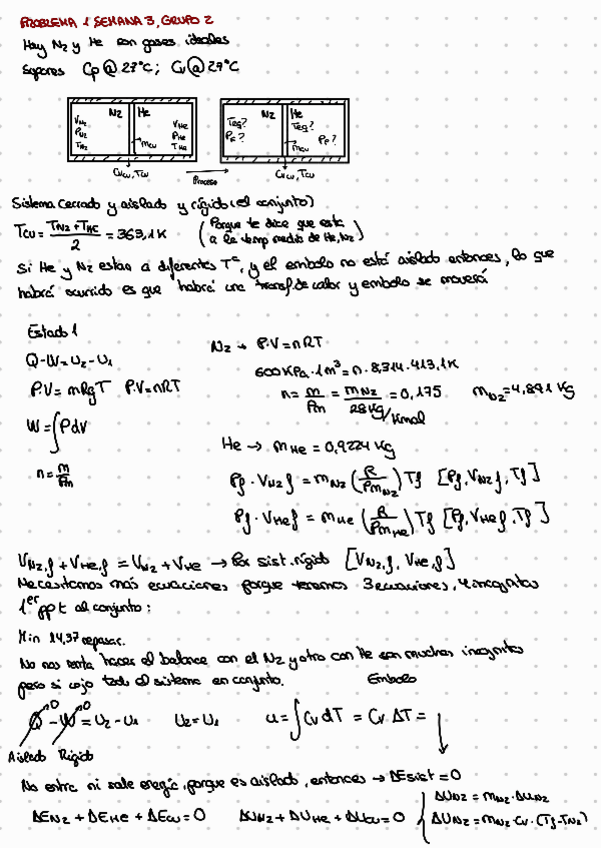 PROBLEMA 1 SEMANA 3, GRUPO 2
Hay N2 y He son gases ideales
Cp @ 27°C ; Cv @ 27°C
N2 He
VN2 VHe
PN2 PHe
TN2 THe
mcu
Cvcu, Tcu
Proceso
N2 He
Teq? Teq?
Pf? Pf?
mcu
Cvcu, Tcu
Sistema cerrado y aislado y rígido (el conjunto)
Tcu = (TN2 + THe)/2 = 363,1K (Porque te dice que esta a la temp media de He, N2)
Si He y N2 estan a diferentes Tª, y el embolo no está aislado entonces, lo que
habrá ocurrido es que habrá una transf de calor y embolo se moverá
Estado 1
Q-W = U2-U1
P.V = mRgT P.V = nRT
W = ∫PdV
n = m/Pm
N2 → P.V = nRT
600KPa · 1m³ = n · 8,314 · 413,1K
n = m/Pm = mN2/28Kg/Kmol = 0,175 mN2 = 4,891 Kg
He → mHe = 0,9224 Kg
Pf · VN2f = mN2 (R/PmN2) Tf [Pf, VN2f, Tf]
Pf · VHef = mHe (R/PmHe) Tf [Pf, VHef, Tf]
VN2,f + VHe,f = VN2 + VHe → Por sist. rígido [VN2,f, VHe,f]
Necesitamos más ecuaciones porque tenemos 3 ecuaciones, 4 incognitas
1er ppt al conjunto:
Min 14,37 repasar.
No nos renta hacer el balance con el N2 y otro con He son muchas incognitas
pero si cojo todo el sistema en conjunto. Embolo
Q⁰ - W⁰ = U2 - U1 U2 = U1 u = ∫Cv dT = Cv ΔT =
Aislado Rígido
No entra ni sale energía, porque es aislado, entonces → ΔEsist = 0
ΔEN2 + ΔEHe + ΔEcu = 0 ΔUN2 + ΔUHe + ΔUcu = 0 { ΔUN2 = mN2 · ΔuN2
ΔUN2 = mN2 · Cv · (Tf - TN2)